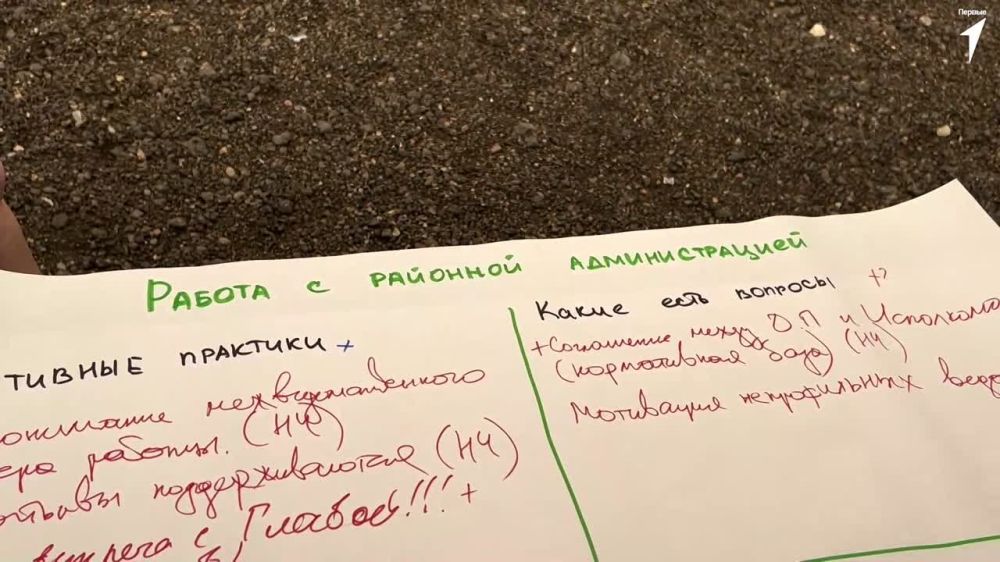 Первые
Работа с районной администрацией
тивные практики +
понимание межведомственного
ера работы. (НЧ)
поддерживаются (НЧ)
встреча с Главой!!! +
Какие есть вопросы +?
+ Соглашение между О.П и Исполкомо
(нормативная база) (НЧ)
Мотивация непрофильных ведо